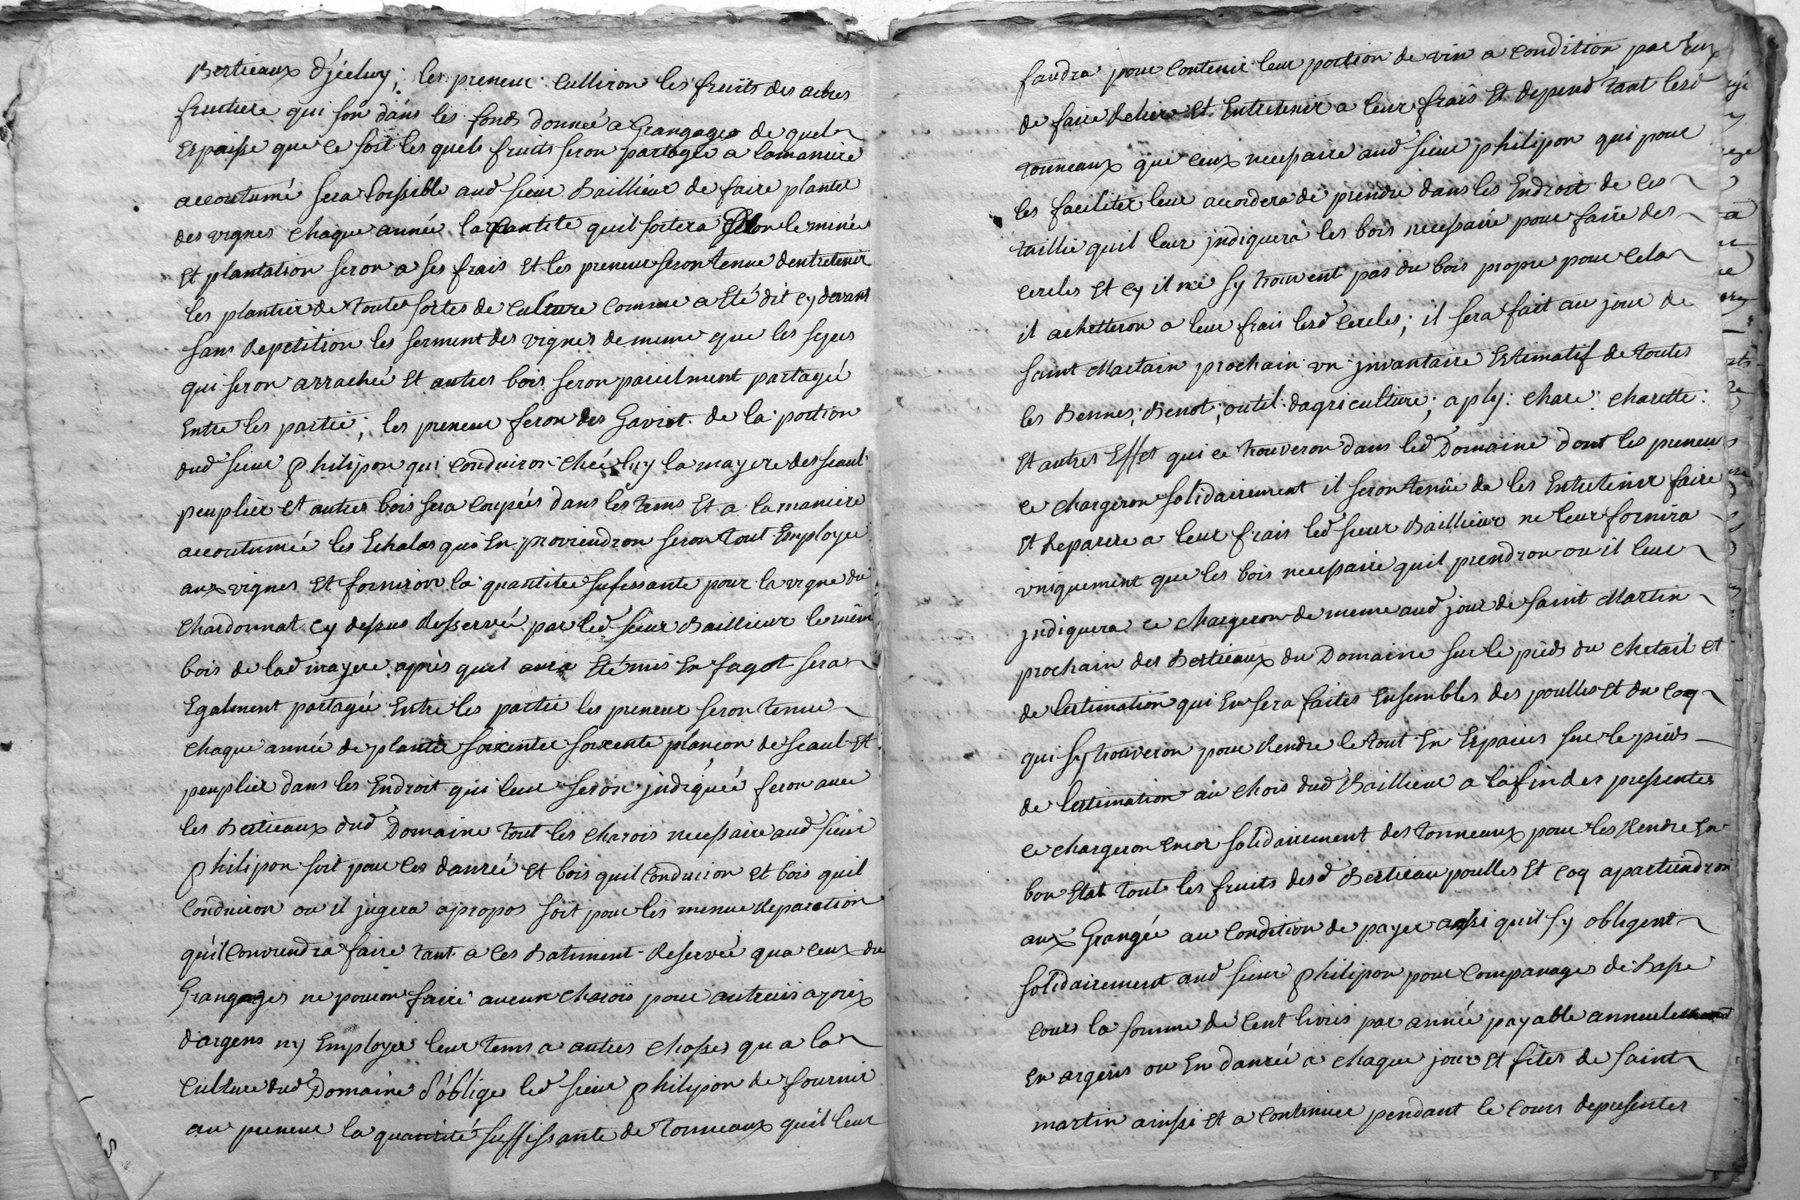 Bestieaux d'jceluy; les preneur culliron les fruits des arbres
fruitiere qui son dans les fonds donnée a Grangages de quel
Espaisse que ce soit les quels fruits seron partagé a lamaniere
accoutumé sera Loissible aud sieur Baillieur de faire planter
des vignes chaque année la quantite quil soitera le minée
Et plantation seron a ses frais Et les preneur seron tenue d'entretenir
les plantier de toutes sortes de culture comme a Eté dit cy devant
sans Repetition les serment des vignes de meme que les sepes
qui seron arrachée Et autres bois seron pareilment partagée
Entre les partie; les preneur feron des Gaviot de la portion
dud sieur philipon qui conduiron cheé luy la mayere des seaul
peuplier et autres bois sera coupées dans les tems Et a la maniere
accoutumée les Echalas qui En proviendron seron tout Employer
aux vignes Et forniron la quantitée sufissante pour la vigne du
chardonnat cy dessus Resservée par led sieur Baillieur le mêm
bois de lad mayere après quil aura Eté mis En fagot sera
Egalment partagée Entre les partie les preneur seron tenue
chaque année de planter soixentes soixente plançon de seaul Et
peuplier dans les Endroit qui leur seron jndiquée feron avec
les Bestieaux dud Domaine tout les charois necessaire aud sieur
philipon soit pour ces danrée Et bois quil conduiron Et bois quil
conduiron ou il jugera apropos soit pour les menue Reparation
qu'il conviendra faire tant a ces Batiment Reservée qua ceux du
Grangages ne pouron faire aucun charois pour autruis a prix
d'argens ny Employer leur tems a autres chosses qu a la
culture dud Domaine s'oblige led sieur philipon de fournir
au preneur la quantité suffissante de tonneaux quil leur
faudra pour contenir leur portion de vin a condition par Eux
de faire Relier Et Entretenir a leur frais Et depend tant lesd
tonneaux que ceux necessaire aud sieur philipon qui pour
les faciliter leur accordera de prendre dans les Endroit de ces
taillie quil leur jndiquera les bois necessaire pour faire des
cercles Et cy il ne sy trouvent pas du bois propre pour cela
il achetteron a leur frais lesd cercles; il sera fait au jour de
saint Martain prochain un jnvantaire Estimatif de toutes
les Bennes; Benot; outil dagriculture; aply: chare: charette:
Et autres Effet qui ce trouveron dans led Domaine dont les preneur
ce chargeron solidairement il seron tenûe de les Entretenir faire
Et Reparere a leur frais led sieur Baillieur ne leur fornira
vniquement que les bois necessaire quil prendron ou il leur
jndiquera ce chargeron de meme aud jour de saint Martin
prochain des Bestieaux du Domaine sur le pieds du chetail et
de l'estimation qui En sera faites Ensembles des poulles Et du coq
qui sy trouveron pour Rendre le tout En Espaces sur le pieds
de lestimation au chois dud Baillieur a la fin des pressentes
ce chargeron encor solidairement des tonneaux pour les Rendre En
bon Etat tout les fruits desd Bestieau poulles Et coq apartiendron
aux Grangée au condition de payer ausi quil sy obligent
solidairement aud sieur philipon pour companages de Basse
cours la somme de cent livres par année payable annuelement
en argens ou En danrée a chaque jour Et fêtes de saint
martin ainssi Et a continuer pendant le cours depresentes